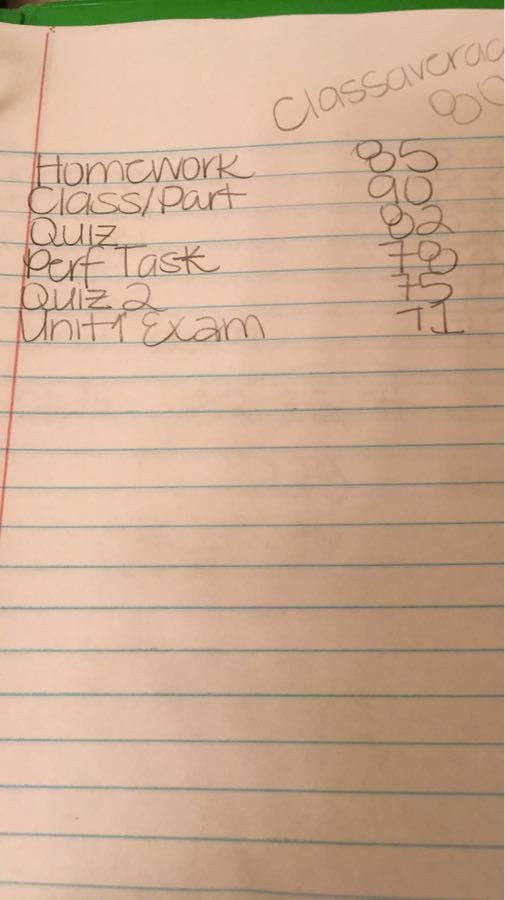 Classaverag
80
Homework 85
Class/Part 90
Quiz 82
Perf Task 78
Quiz 2 75
Unit 1 Exam 71